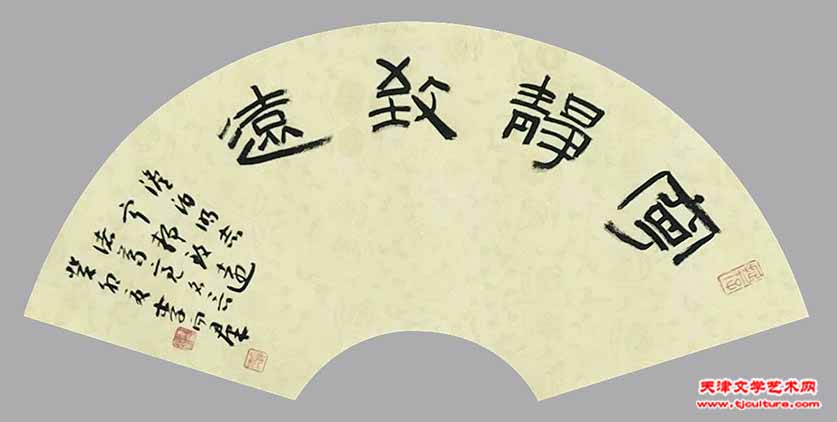 寧靜致遠
淡泊明志
宁静致遠
癸卯夏
天津文学艺术网
www.tjculture.com